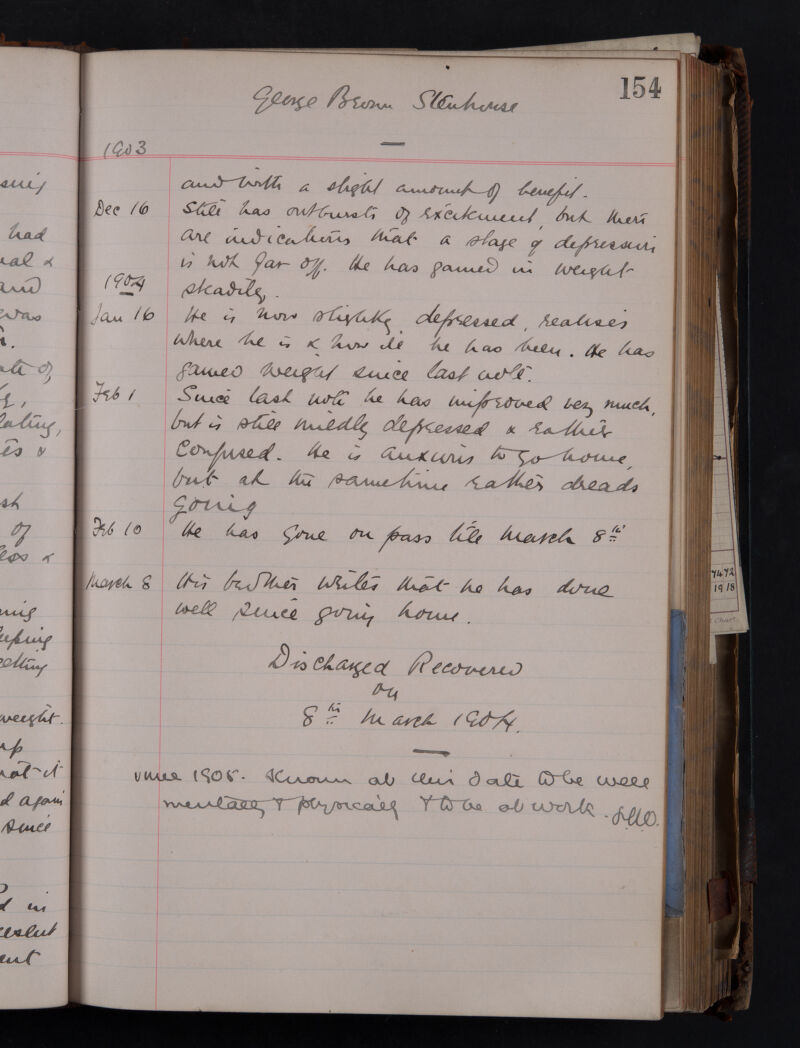 154
George Brown Stenhouse
1903
and with a slight amount of benefit.
Dec 16 Still has outbursts of excitement, but there
are indications that a stage of depression
is not far off. He has gained in weight
1904 steadily.
Jan 16 He is now slightly depressed, realises
where he is & how ill he has been. He has
gained weight since last note.
Feb 1 Since last note he has improved very much,
but is still mildly depressed & rather
confused. He is anxious to go home,
but at the sametime rather dreads
going
Feb 10 He has gone on pass till March 8th
March 8 His brother writes that he has done
well since going home.
Discharged Recovered
on
8th March 1904.
June 1905. Known at this date to be well
mentally & physically & to be at work.
had
and
was
of
st
of
weight.
up
not it
d again
since
d in
7472
1918
Chart